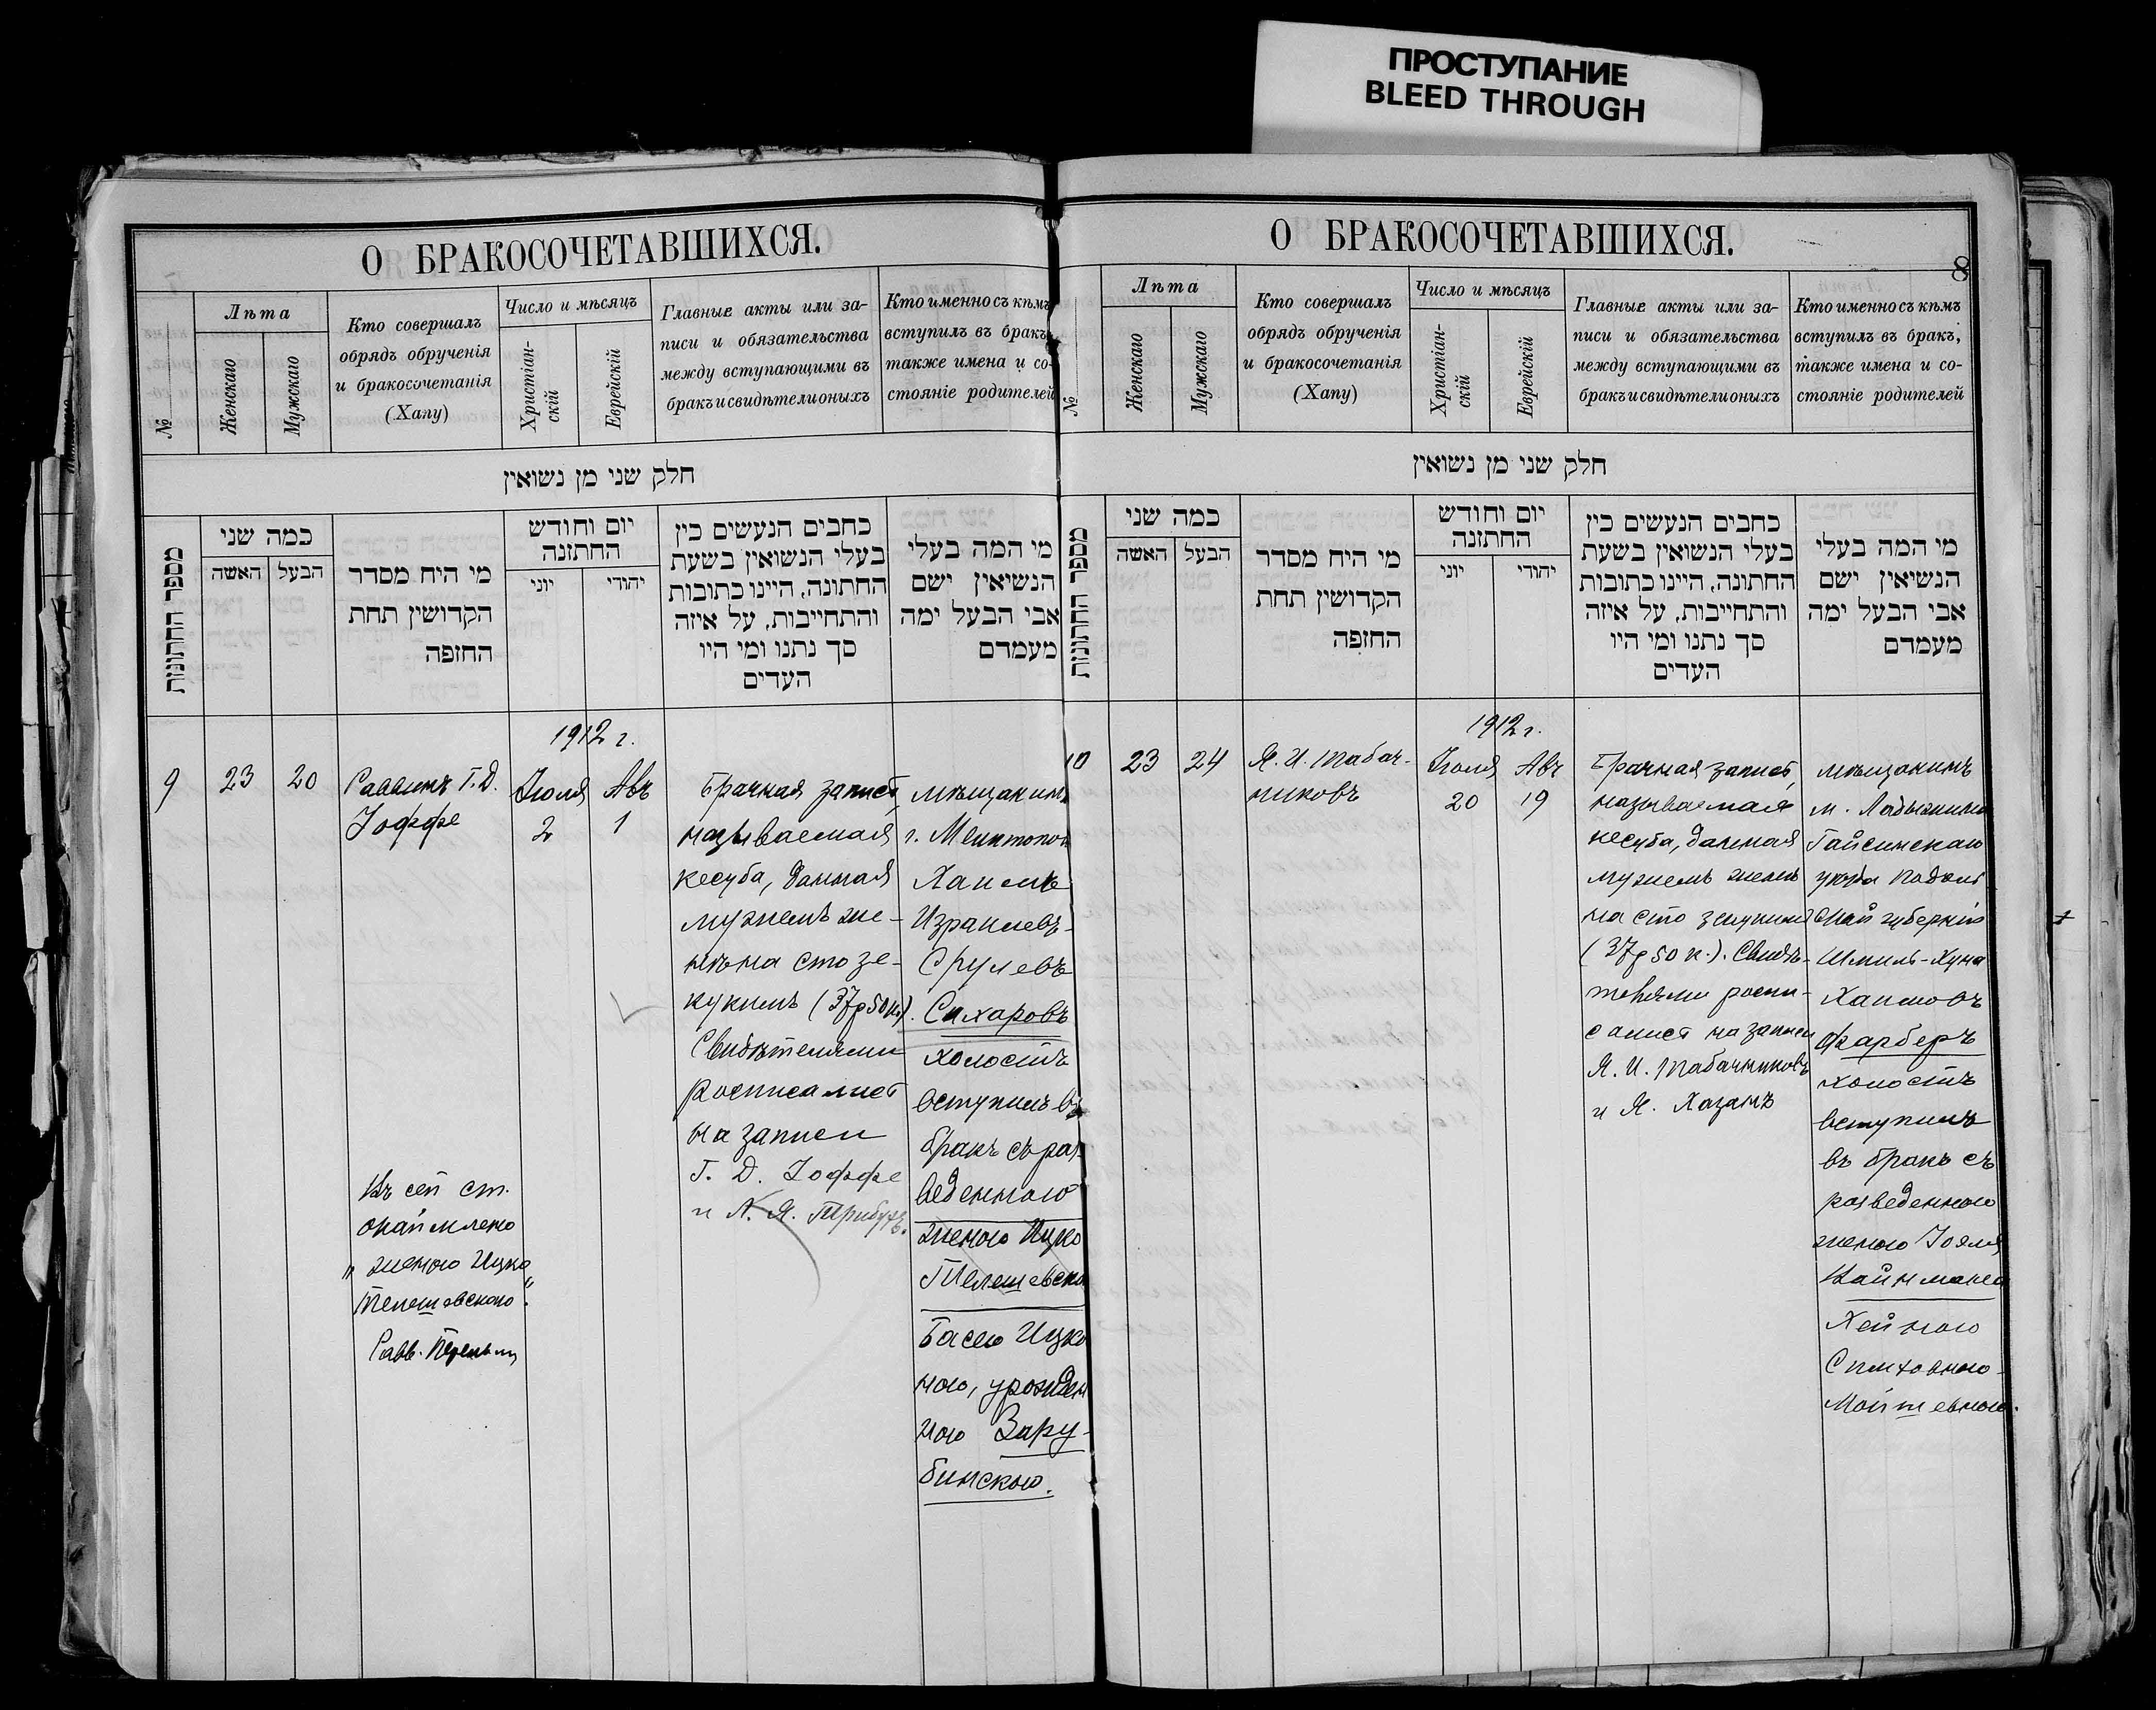 ПРОСТУПАНИЕ
BLEED THROUGH
О БРАКОСОЧЕТАВШИХСЯ.
№
Лѣта
Женскаго
Мужскаго
Кто совершалъ
обрядъ обрученія
и бракосочетанія
(Хапу)
Число и мѣсяцъ
Христіан-
скій
Еврейскій
Главные акты или за-
писи и обязательства
между вступающими въ
бракъ и свидѣтели оныхъ
Кто именно съ кѣмъ
вступилъ въ бракъ,
также имена и со-
стояніе родителей
חלק שני מן נשואין
מספר החתונות
כמה שני
האשה
הבעל
מי היח מסדר
הקדושין תחת
החזפה
יום וחודש
החתזנה
יוני
יהודי
כחבים הנעשים כין
בעלי הנשואין בשעת
החתונה, היינו כתובות
והתחייבות, על איזה
סך נתנו ומי היו
העדים
מי המה בעלי
הנשיאין ישם
אבי הבעל ימה
מעמדם
1912 г.
9
23
20
Раввинъ Г. Д.
Іоффе
Іюля
2
Авъ
1
Брачная запись,
называемая
кесуба, данная
мужемъ же-
нѣ на сто зе-
кукимъ (37р 50к).
Свидѣтелями
росписались
на записи
Г. Д. Іоффе
и А. Я. Трибухъ.
мѣщанинъ
г. Мелитопол
Хаимъ
Израилевъ-
Срулевъ
Сахаровъ
холостъ
вступилъ въ
бракъ съ раз
веденною
женою Ицко
Телешевска
Басею Ицко
ною, урожден
ною Зару-
бинскою.
Въ сей ст.
"женою Ицко
Телешевскаго".
Равв.
О БРАКОСОЧЕТАВШИХСЯ.
8
№
Лѣта
Женскаго
Мужскаго
Кто совершалъ
обрядъ обрученія
и бракосочетанія
(Хапу)
Число и мѣсяцъ
Христіан-
скій
Еврейскій
Главные акты или за-
писи и обязательства
между вступающими въ
бракъ и свидѣтели оныхъ
Кто именно съ кѣмъ
вступилъ въ бракъ,
также имена и со-
стояніе родителей
חלק שני מן נשואין
מספר החתונות
כמה שני
האשה
הבעל
מי היח מסדר
הקדושין תחת
החזפה
יום וחודש
החתזנה
יוני
יהודי
כחבים הנעשים כין
בעלי הנשואין בשעת
החתונה, היינו כתובות
והתחייבות, על איזה
סך נתנו ומי היו
העדים
מי המה בעלי
הנשיאין ישם
אבי הבעל ימה
מעמדם
1912 г.
10
23
24
Я. И. Табач-
никовъ
Іюля
20
Авъ
19
Брачная запись,
называемая
кесуба, данная
мужемъ женѣ
на сто зекукимъ
(37р 50 к.). Свидѣ-
телями роспи-
сались на записи
Я. И. Табачниковъ
и Я. Хазанъ
мѣщанинъ
м. Ладыжина
Гайсинскаго
уѣзда Подоль
ской губерніи
Шмиль-Хуна
Хаимовъ
Фарберъ
холостъ
вступилъ
въ бракъ съ
разведенною
женою Іоэля
Вайнмана
Хейною
Симховною-
Мойшевною.